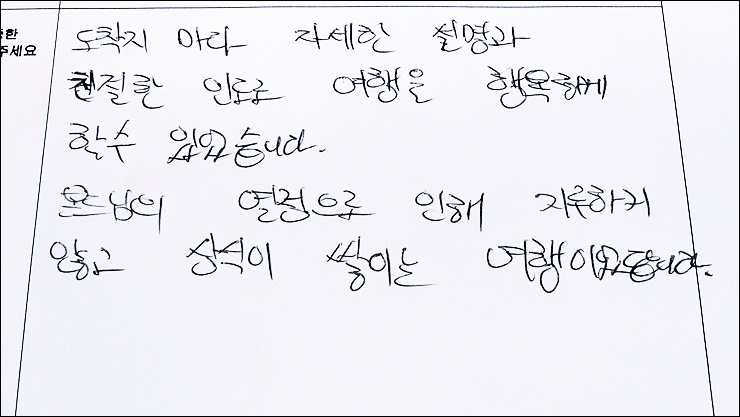 한
주세요
도착지 마다 자세한 설명과
친절한 인도로 여행을 행복하게
할수 있었습니다.
열정으로 인해 지루하지
않고 상식이 쌓이는 여행이었습니다.